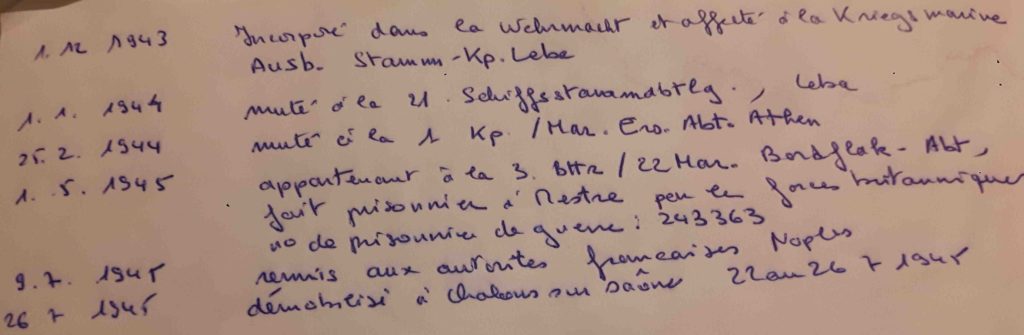 1. 12 1943 Incorporé dans la Wehrmacht et affecté à la Kriegsmarine
Ausb. Stamm-Kp. Leba
1. 1. 1944 muté à la 21. Schiffsstammabtlg., Leba
25. 2. 1944 muté à la 1 Kp. / Mar. Ers. Abt. Athen
1. 5. 1945 appartenant à la 3. Bttr / 22 Mar. Bordflak-Abt,
fait prisonnier à Mestre par les forces britanniques
no de prisonnier de guerre : 243363
9. 7. 1945 remis aux autorités françaises Naples
26 7 1945 démobilisé à Chalons sur Saône 22 au 26 7 1945